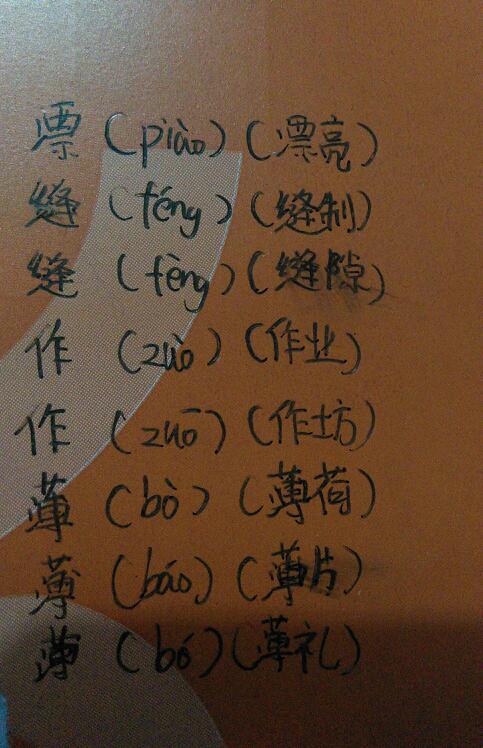 漂(piào)(漂亮)
缝(féng)(缝制)
缝(fèng)(缝隙)
作(zuò)(作业)
作(zuō)(作坊)
薄(bò)(薄荷)
薄(báo)(薄片)
薄(bó)(薄礼)